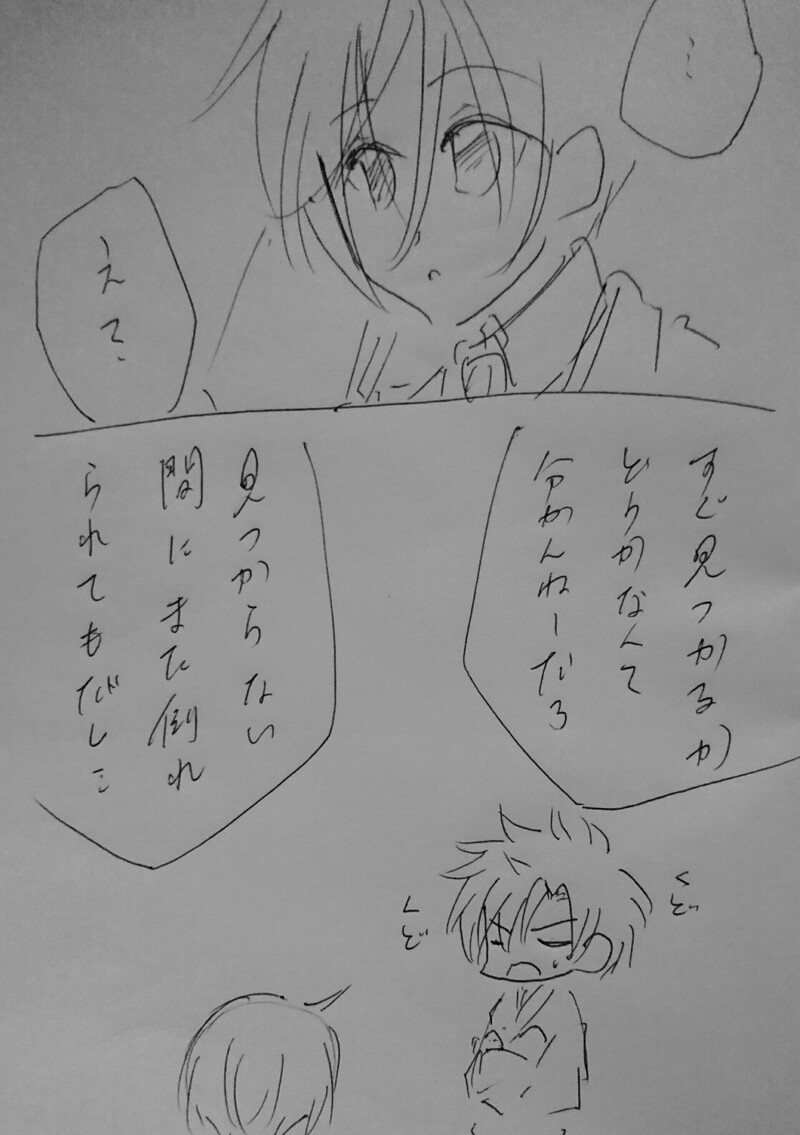 …
えて…
すぐ見つかるか
どうかなんて
分かんねーだろ
見つからない
間にまた倒れ
られてもだし…
くど
くど